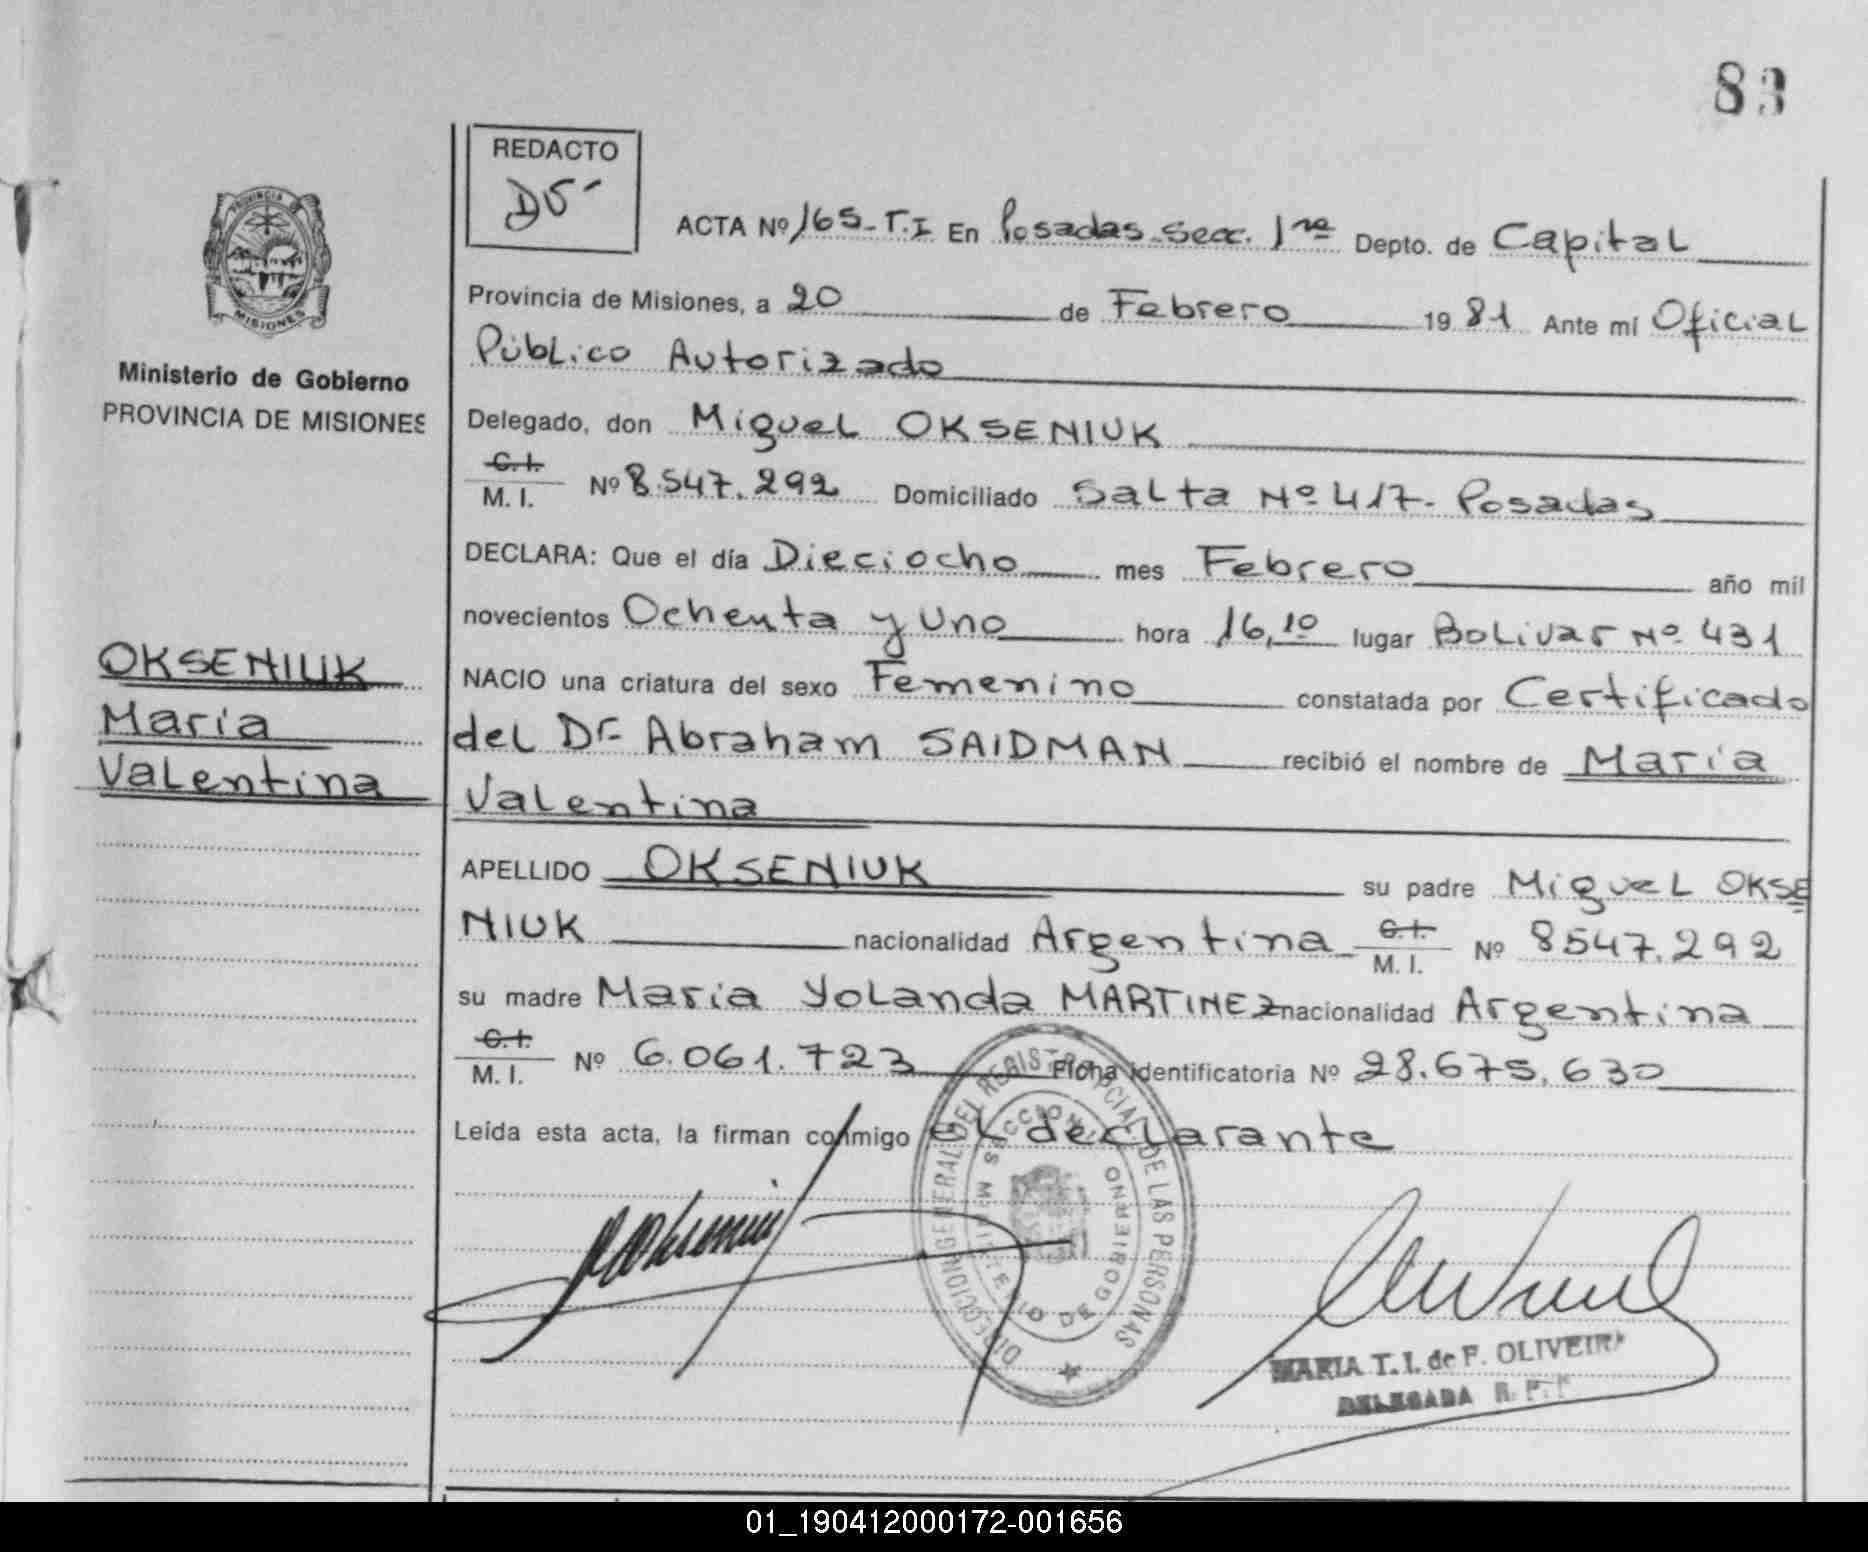 83
REDACTO
DS
PROVINCIA DE
MISIONES
Ministerio de Gobierno
PROVINCIA DE MISIONES
OKSENIUK
María
Valentina
ACTA Nº 165-T.I En Posadas-Secc. 1ra Depto. de Capital
Provincia de Misiones, a 20 de Febrero 1981 Ante mí Oficial
Público Autorizado
Delegado, don Miguel OKSENIUK
C.I. M.I. Nº 8.547.292 Domiciliado Salta Nº 417- Posadas
DECLARA: Que el día Dieciocho mes Febrero año mil
novecientos Ochenta y Uno hora 16,10 lugar Bolivar Nº 431
NACIO una criatura del sexo Femenino constatada por Certificado
del Dr- Abraham SAIDMAN recibió el nombre de María
Valentina
APELLIDO OKSENIUK su padre Miguel OKSE
NIUK nacionalidad Argentina C.I. M.I. Nº 8547.292
su madre María Yolanda MARTINEZ nacionalidad Argentina
C.I. M.I. Nº 6.061.723 Ficha Identificatoria Nº 28.675.630
Leída esta acta, la firman conmigo el declarante
DIRECCION GENERAL DEL REGISTRO PCIAL. DE LAS PERSONAS
MINISTERIO DE GOBIERNO
MARIA T. I. de F. OLIVEIRA
DELEGADA R. P.
01_190412000172-001656